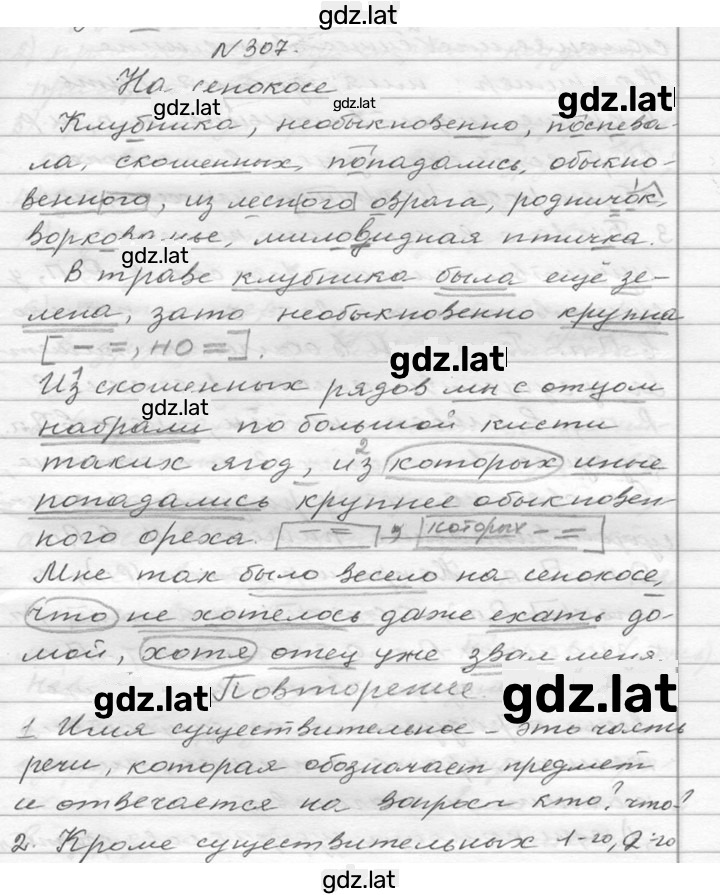 gdz.lat
N 307.
На сенокосе
gdz.lat gdz.lat gdz.lat
Клубника, необыкновенно, поспева-
ла, скошенных, попадались, обыкно-
венного, из лесного оврага, родничок,
воркованье, миловидная птичка.
gdz.lat
В траве клубника была ещё зе-
лена, зато необыкновенно крупна
[ - =, но = ].
gdz.lat
Из скошенных рядов мы с отцом
gdz.lat
набрали по большой кисти
таких ягод, из которых иные
попадались крупнее обыкновен-
ного ореха. [ = ], [которых - = ]
Мне так было весело на сенокосе,
что не хотелось даже ехать до-
мой, хотя отец уже звал меня.
gdz.lat Повторение gdz.lat
1. Имя существительное - это часть
речи, которая обозначает предмет
и отвечает на вопросы кто? что?
2. Кроме существительных 1-го, 2-го
gdz.lat